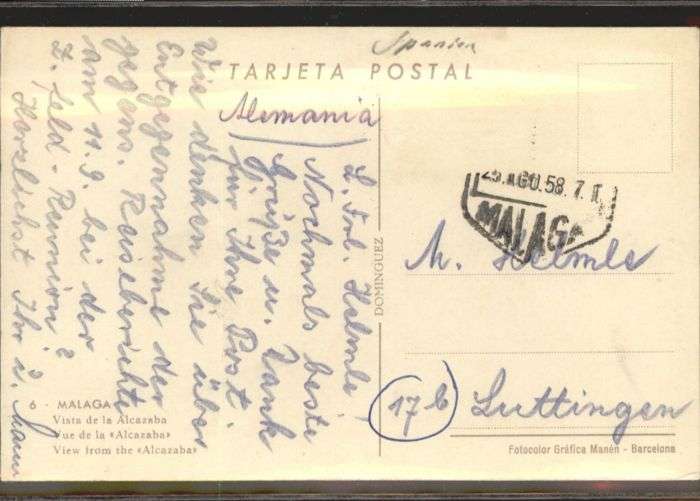 Spanien
TARJETA POSTAL
Alemania
L. Frl. Helmle
Nochmals beste
Grüße u. Dank
für Ihre Post
Wie denken Sie über
Entgegennahme der
gegens. Reiseberichte
am 11.9. bei der
Z. feld-Reunion?
Herzlichst Ihr
DOMINGUEZ
AGO.58.7.T
MALAGA
M. Helmle
17b
Luttingen
6 - MALAGA
Vista de la Alcazaba
Vue de la «Alcazaba»
View from the «Alcazaba»
Fotocolor Gráfica Manén - Barcelona